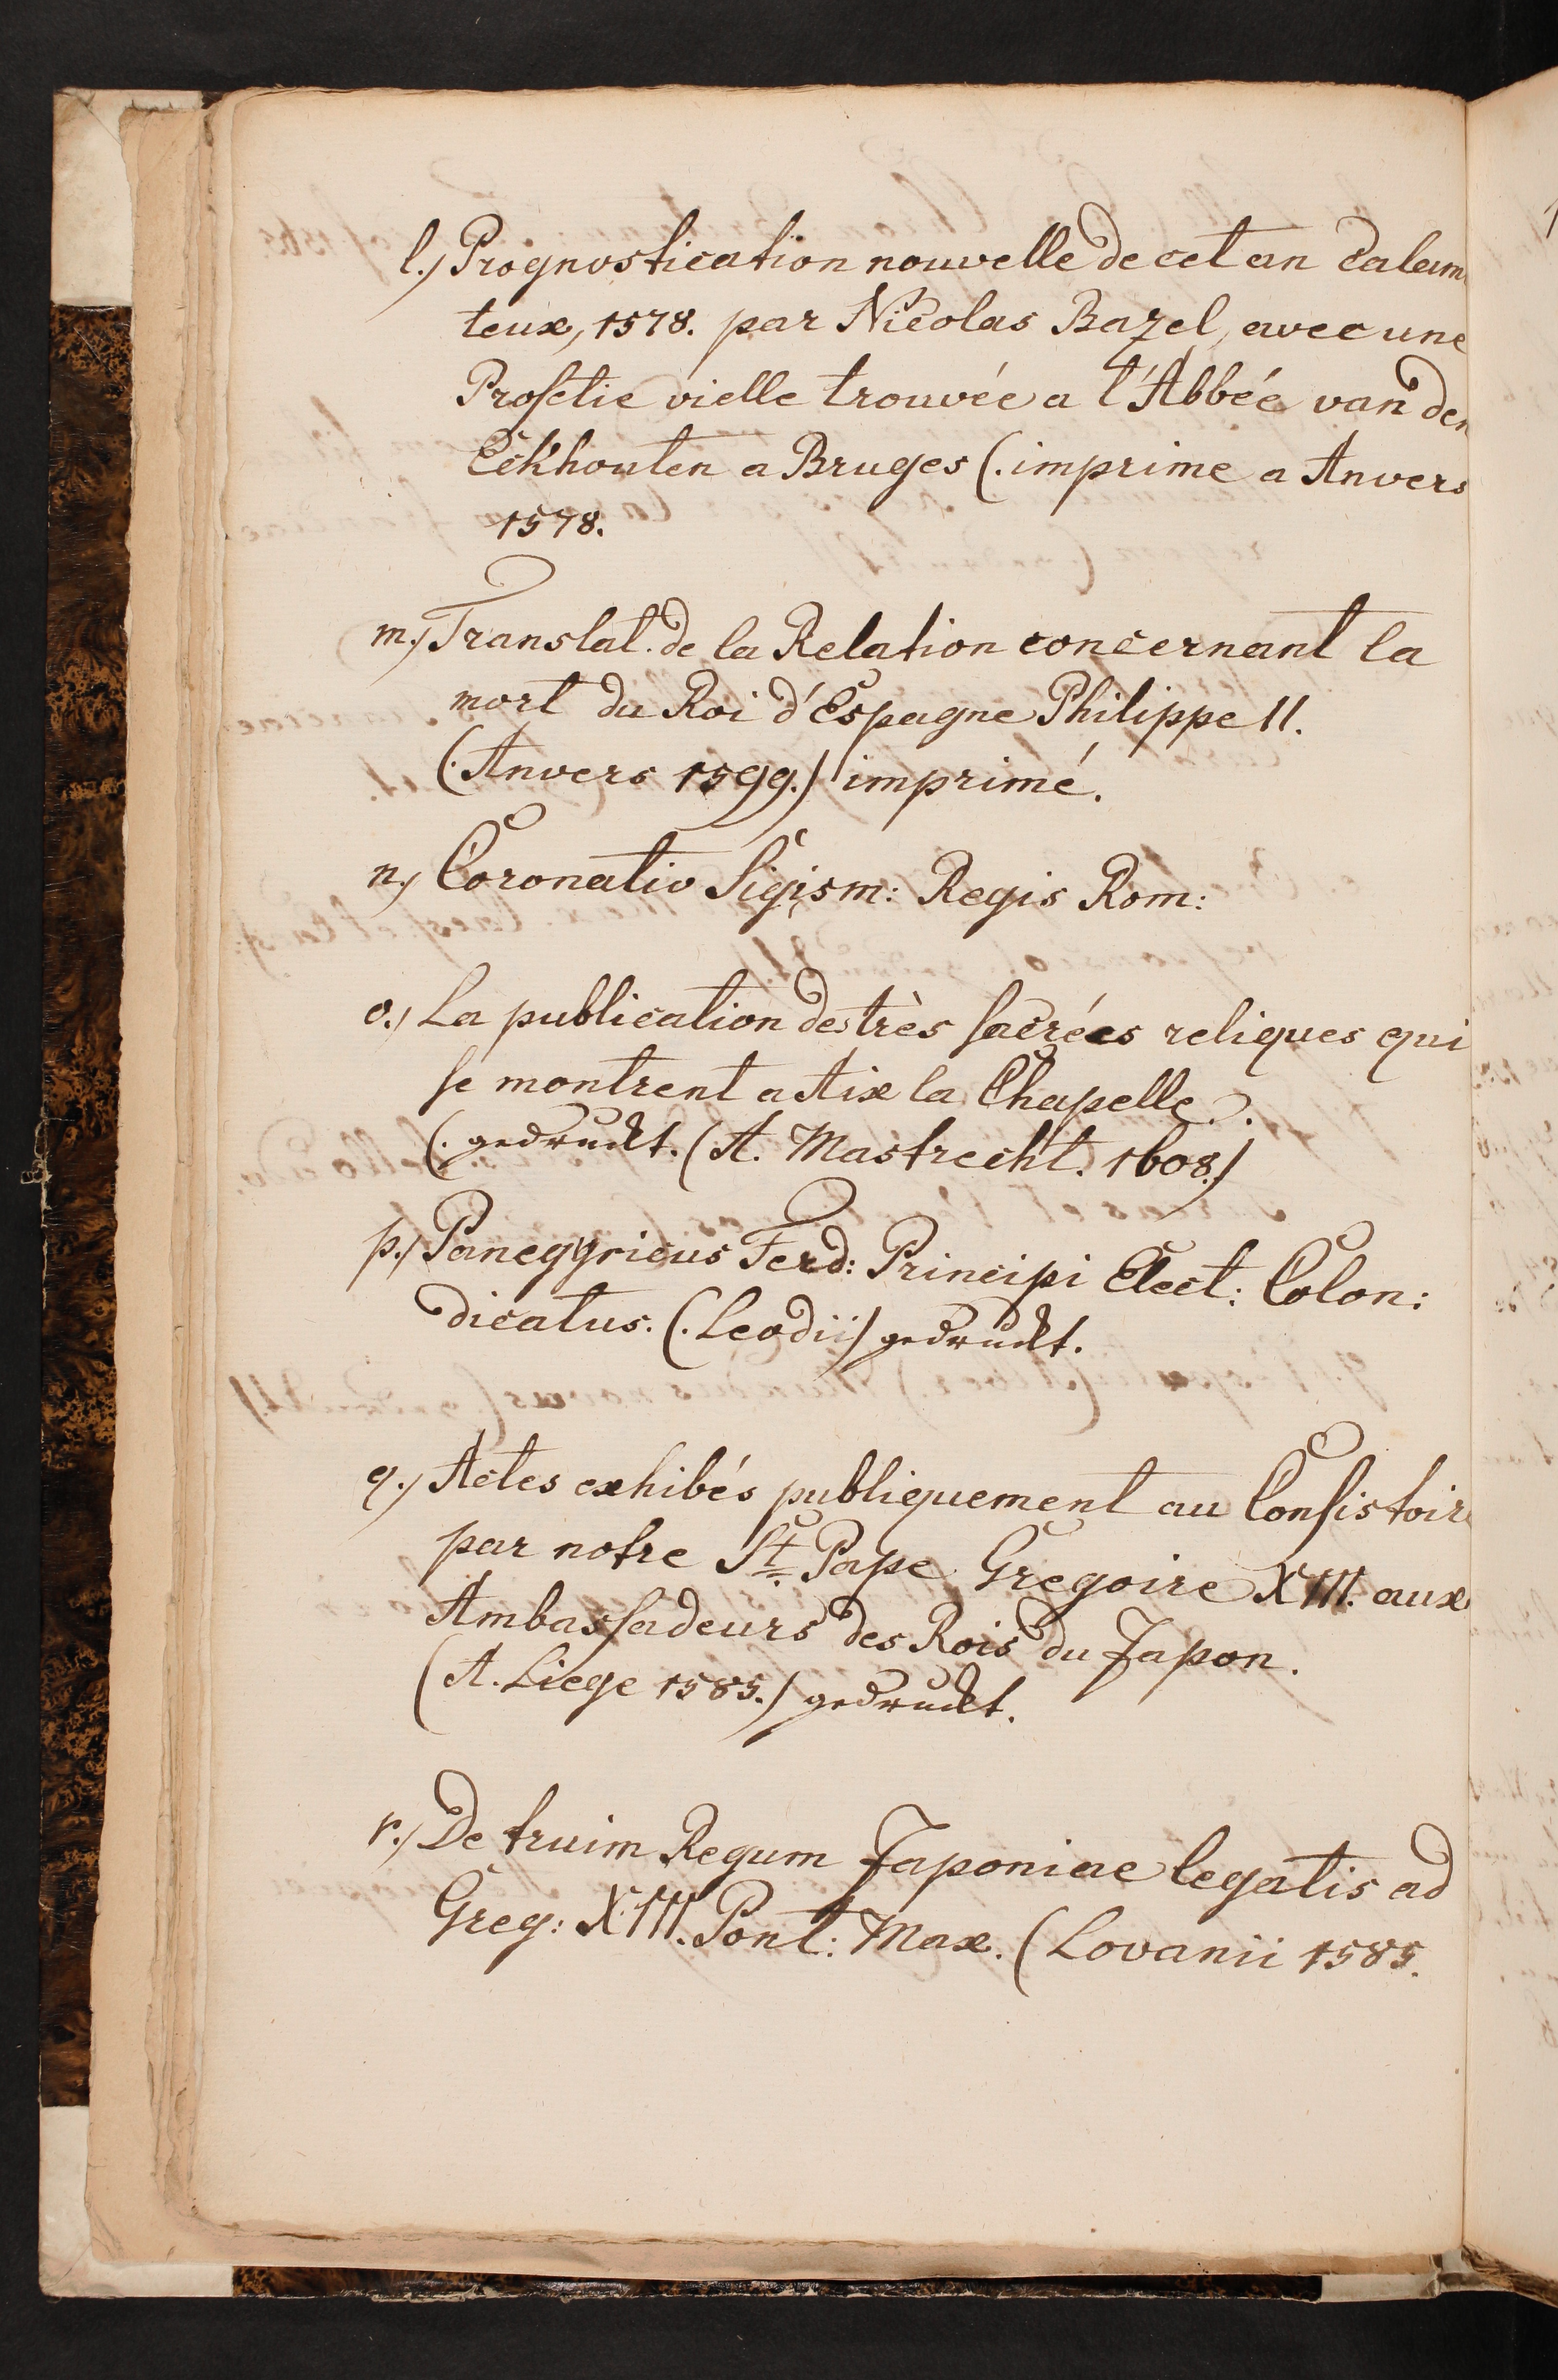 l.) Prognostication nouvelle de cet an calam
teux, 1578. par Nicolas Bazel, avec une
Profetie vielle trouvée a l'Abbée van den
Eckhouten a Bruges (. imprime a Anvers
1578.
m.) Translat. de la Relation concernant la
mort du Roi d'Espagne Philippe II.
(. Anvers 1599.) imprimé.
n.) Coronatio Sigism: Regis Rom:
o.) La publication des très sacrées reliques qui
se montrent a Aix la Chapelle.
(. gedruckt. (A. Mastrecht. 1608.)
p.) Panegyricus Ferd: Principi Elect: Colon:
dicatus. (. Leodii) gedruckt.
q.) Actes exhibés publiquement au Consistoire
par notre St. Pape Gregoire XIII. aux
Ambassadeurs des Rois du Japon.
(A. Liege 1585.) gedruckt.
r.) De truim Regum Japoniae legatis ad
Greg: XIII. Pont: Max. (Lovanii 1585.